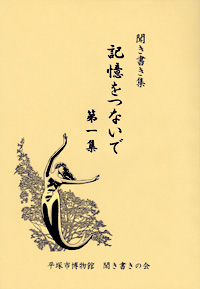 聞き書き集
記憶をつないで
第一集
平塚市博物館 聞き書きの会